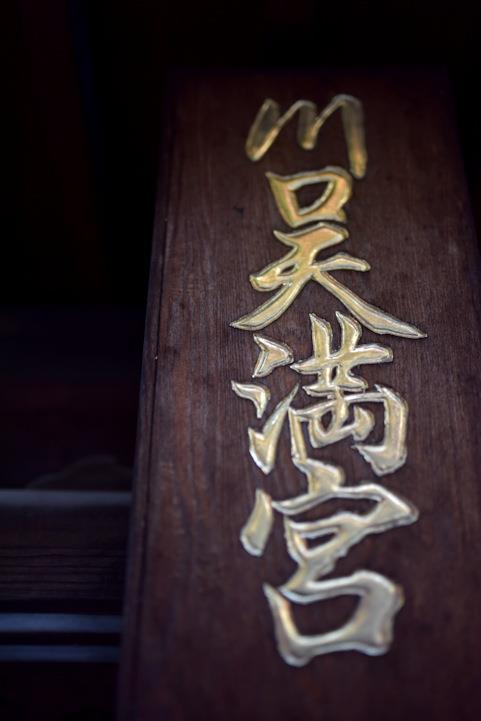 川口天満宮